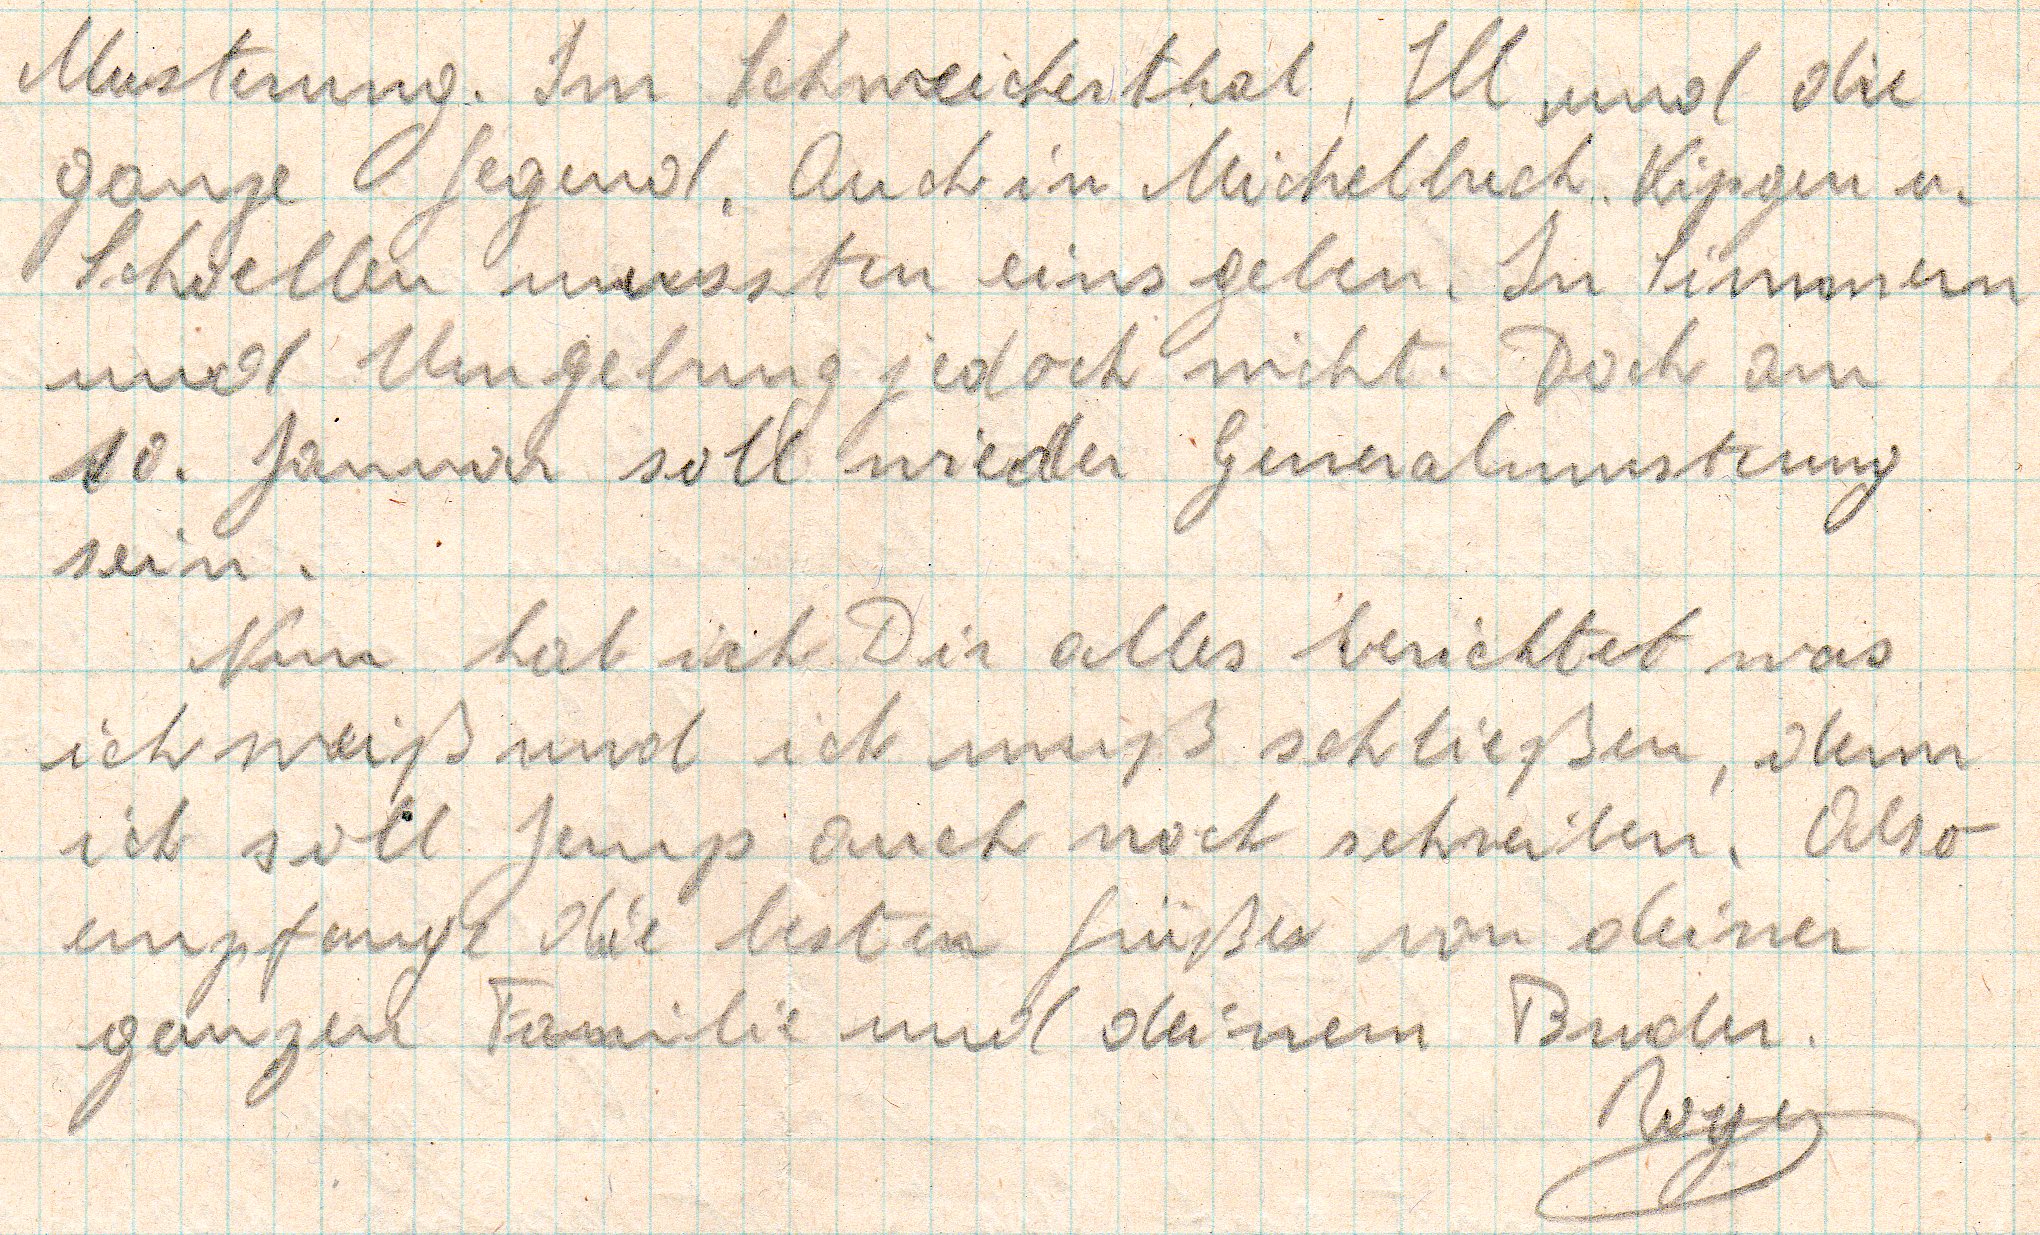 Musterung. Im Schweicherthal, Ell und die
ganze Gegend. Auch in Michelbuch. Kipgen u.
Schoellen mussten eins geben. In Simmern
und Umgebung jedoch nicht. Doch am
10. Januar soll wieder Generalmusterung
sein.
Nun hab ich Dir alles berichtet was
ich weiß und ich muß schließen, denn
ich soll Jemp auch noch schreiben. Also
empfange die besten Grüße von deiner
ganzen Familie und deinem Bruder.
Roger